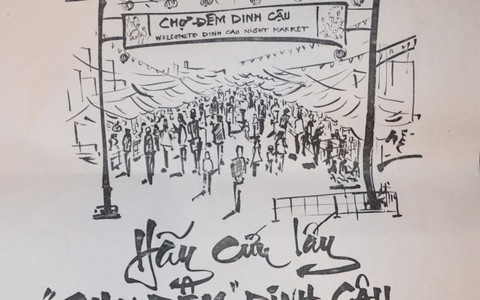 CHỢ ĐÊM DINH CẬU
WELCOME TO DINH CAU NIGHT MARKET
Hãy cứu lấy
"CHỢ ĐÊM" DINH CẬU